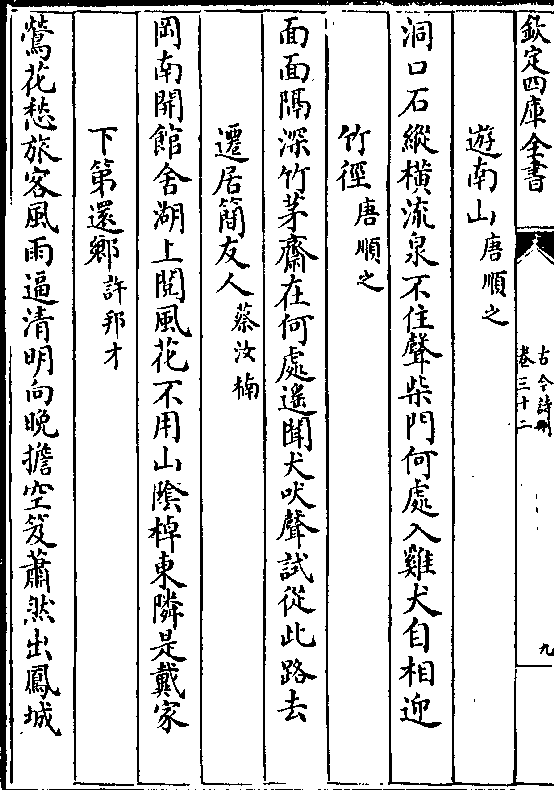 欽定四庫全書
古今詩刪
卷三十二
九
遊南山 唐順之
洞口石縱橫流泉不住聲柴門何處入雞犬自相迎
竹徑 唐順之
面面隔深竹茅齋在何處遙聞犬吠聲試從此路去
遷居簡友人 蔡汝楠
岡南開館舍湖上閱風花不用山陰棹東隣是戴家
下第還鄉 許邦才
鶯花愁旅客風雨逼清明向晚擔空笈蕭然出鳳城